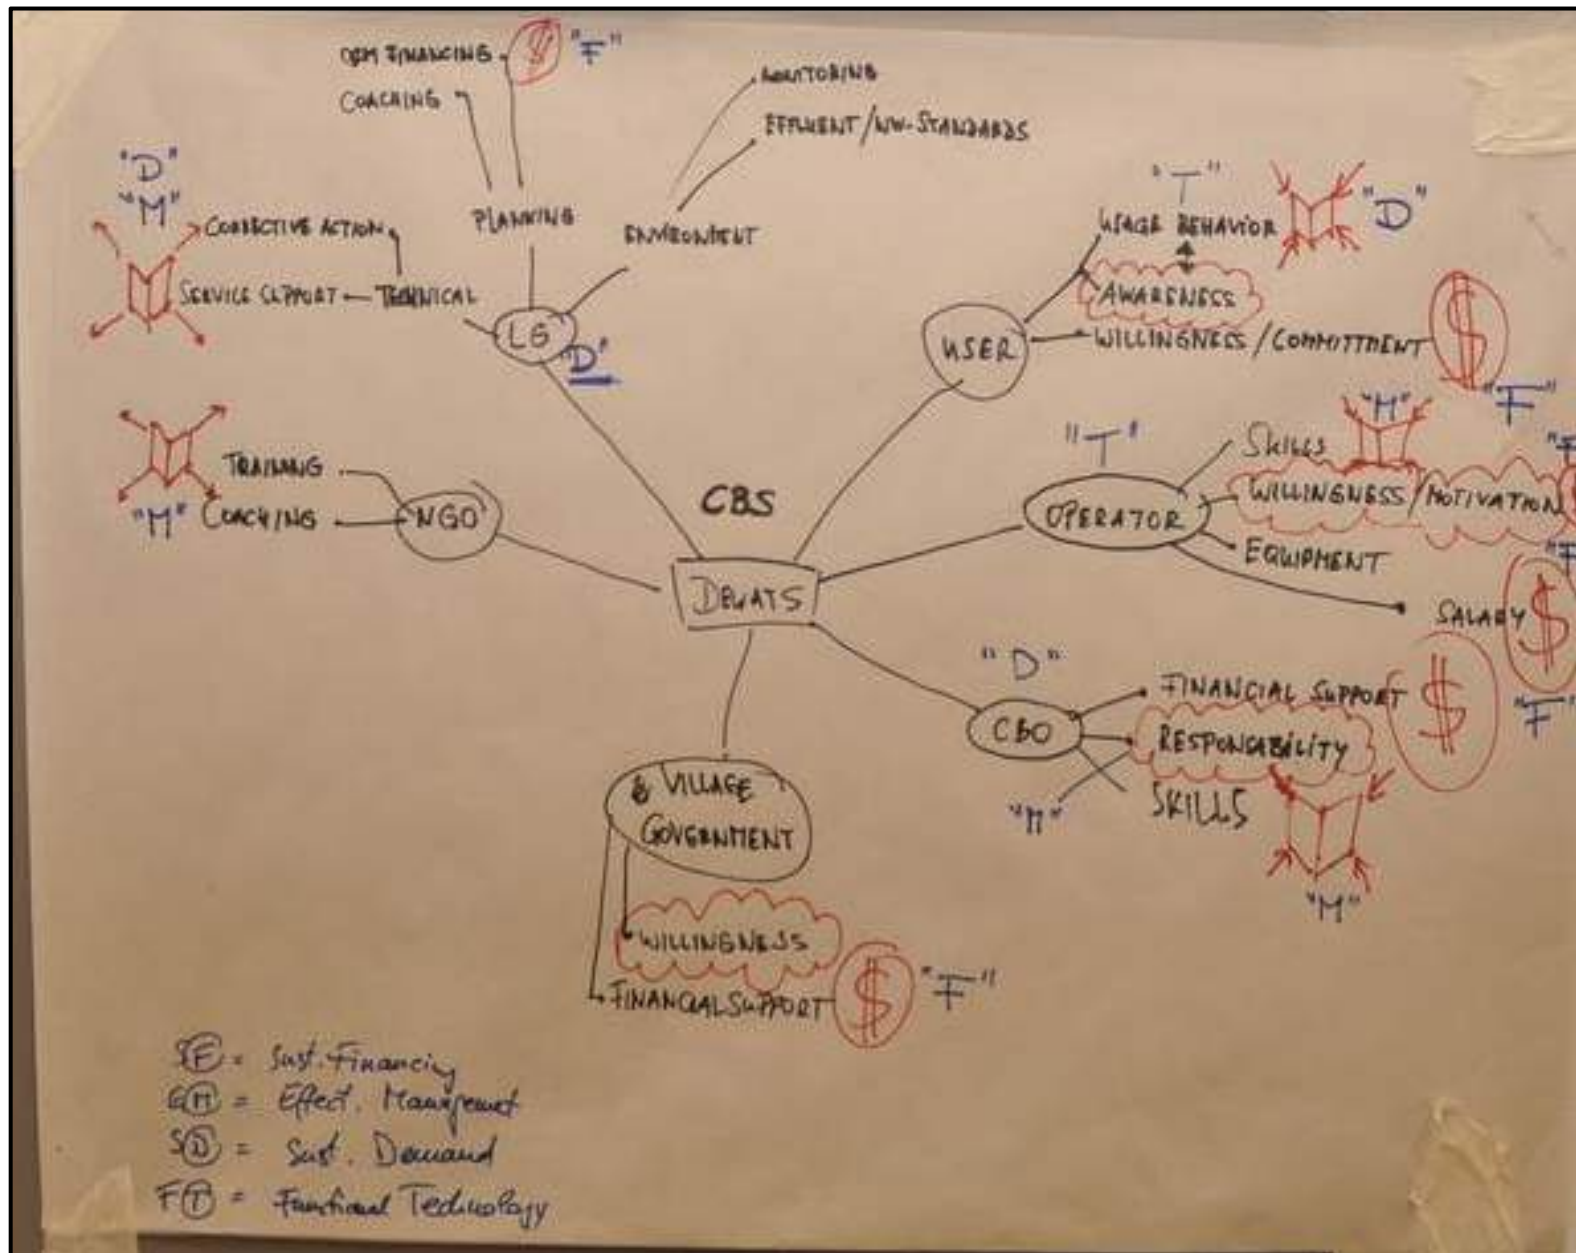 O&M FINANCING $ "F"
COACHING
MONITORING
EFFLUENT/WW-STANDARDS
"D"
"M"
CORRECTIVE ACTION
PLANNING
ENVIRONMENT
SERVICE SUPPORT
TECHNICAL
LG
"D"
"T"
USAGE BEHAVIOR
"D"
AWARENESS
USER
WILLINGNESS/COMMITTMENT
$
"F"
TRAINING
"M" COACHING
NGO
CBS
DEWATS
"T"
OPERATOR
SKILLS
"M"
WILLINGNESS/MOTIVATION
EQUIPMENT
SALARY $
"D"
CBO
FINANCIAL SUPPORT $
"F"
RESPONSABILITY
"M"
SKILLS
"M"
VILLAGE
GOVERNMENT
WILLINGNESS
FINANCIAL SUPPORT $ "F"
SF = Sust. Financing
EM = Effect. Managemet
SD = Sust. Demand
FT = Functional Technology